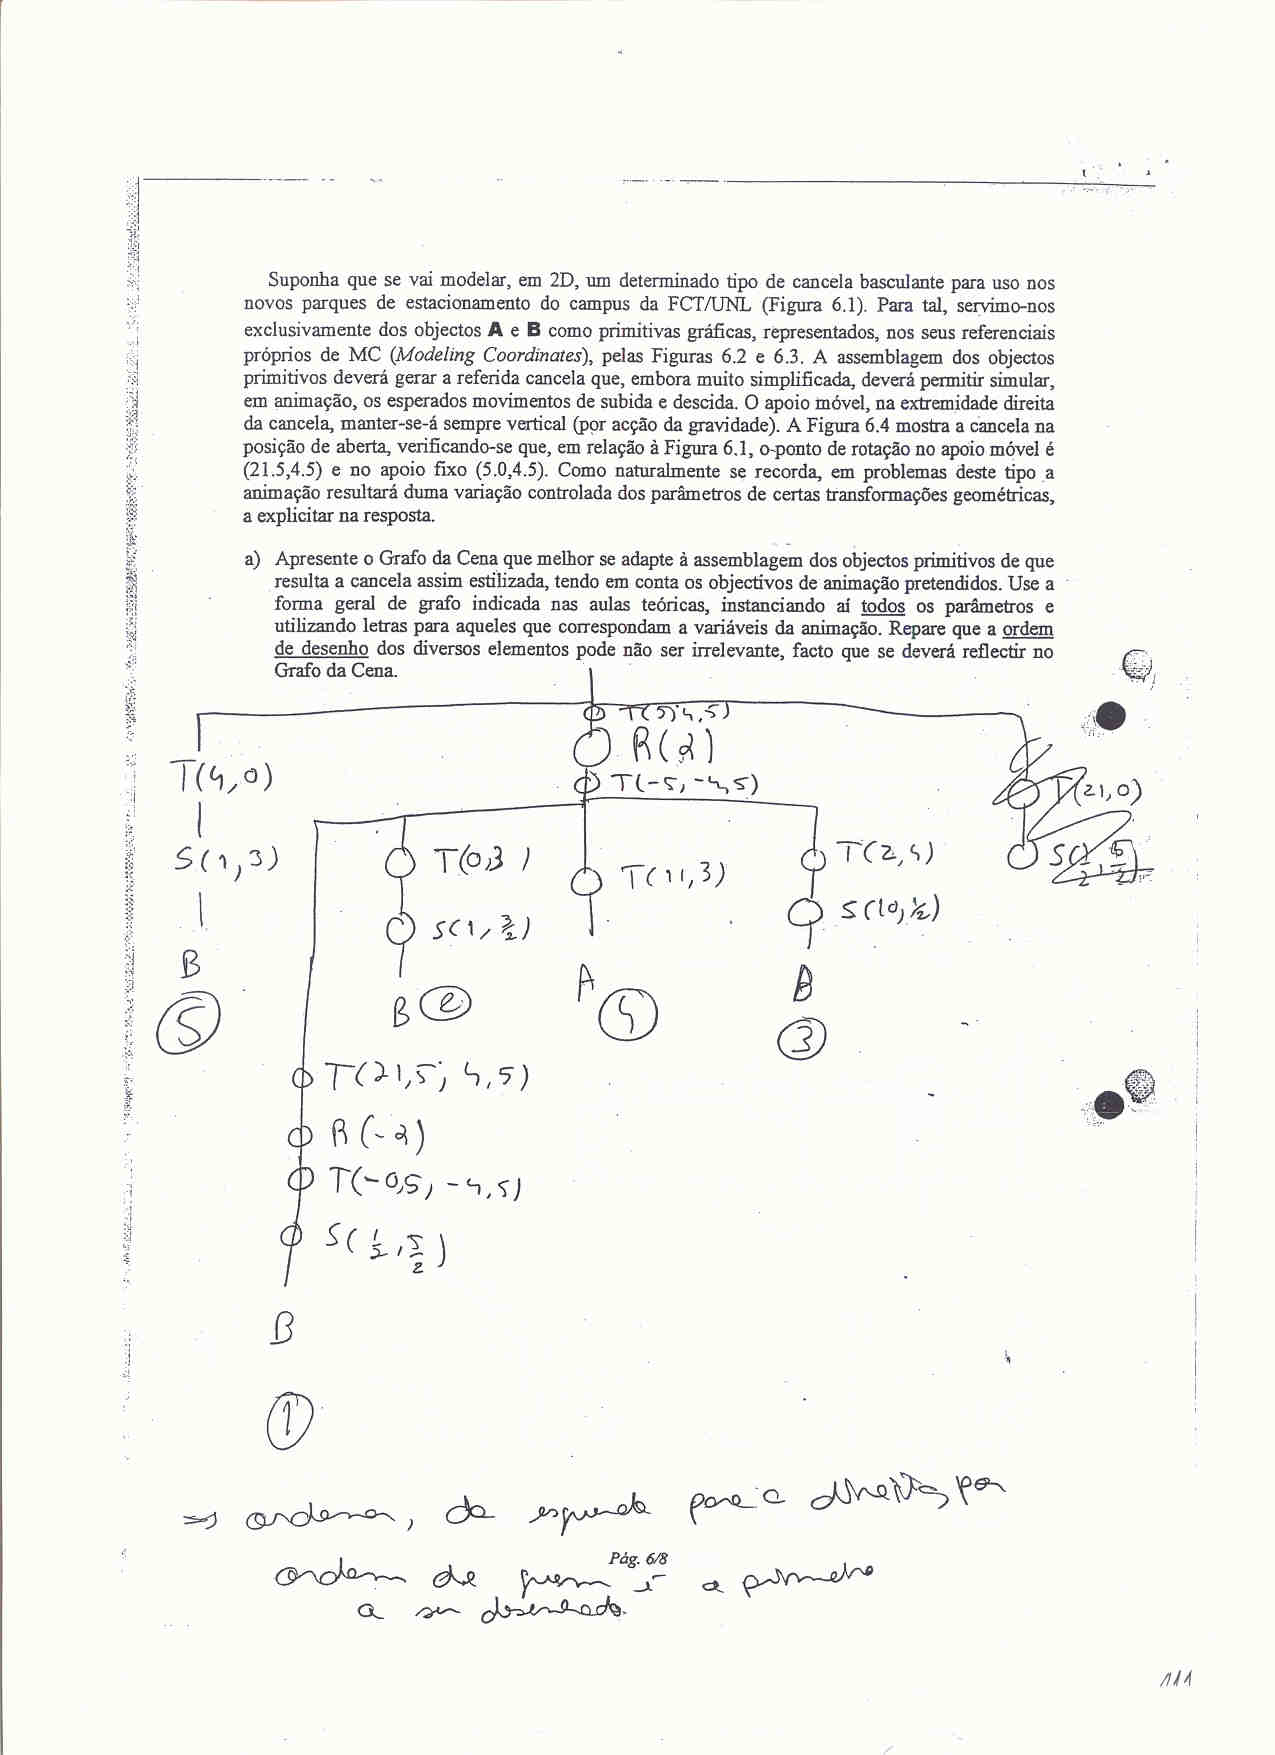 Suponha que se vai modelar, em 2D, um determinado tipo de cancela basculante para uso nos
novos parques de estacionamento do campus da FCT/UNL (Figura 6.1). Para tal, servimo-nos
exclusivamente dos objectos A e B como primitivas gráficas, representados, nos seus referenciais
próprios de MC (Modeling Coordinates), pelas Figuras 6.2 e 6.3. A assemblagem dos objectos
primitivos deverá gerar a referida cancela que, embora muito simplificada, deverá permitir simular,
em animação, os esperados movimentos de subida e descida. O apoio móvel, na extremidade direita
da cancela, manter-se-á sempre vertical (por acção da gravidade). A Figura 6.4 mostra a cancela na
posição de aberta, verificando-se que, em relação à Figura 6.1, o ponto de rotação no apoio móvel é
(21.5,4.5) e no apoio fixo (5.0,4.5). Como naturalmente se recorda, em problemas deste tipo a
animação resultará duma variação controlada dos parâmetros de certas transformações geométricas,
a explicitar na resposta.
a) Apresente o Grafo da Cena que melhor se adapte à assemblagem dos objectos primitivos de que
resulta a cancela assim estilizada, tendo em conta os objectivos de animação pretendidos. Use a
forma geral de grafo indicada nas aulas teóricas, instanciando aí todos os parâmetros e
utilizando letras para aqueles que correspondam a variáveis da animação. Repare que a ordem
de desenho dos diversos elementos pode não ser irrelevante, facto que se deverá reflectir no
Grafo da Cena.
T(5;4,5)
R(α)
T(-5,-4,5)
T(4,0)
T(21,0)
S(1,3)
T(0,3)
T(11,3)
T(2,4)
S(1/2, 5/2)
S(1, 3/2)
S(10,½)
B
B
A
B
5
2
4
3
T(21,5; 4,5)
R(-α)
T(-0,5, -4,5)
S(1/2, 5/2)
B
1
=> ordenar, da esquerda para a direita, por
Pág. 6/8
ordem de quem é o primeiro
a ser desenhado.
111